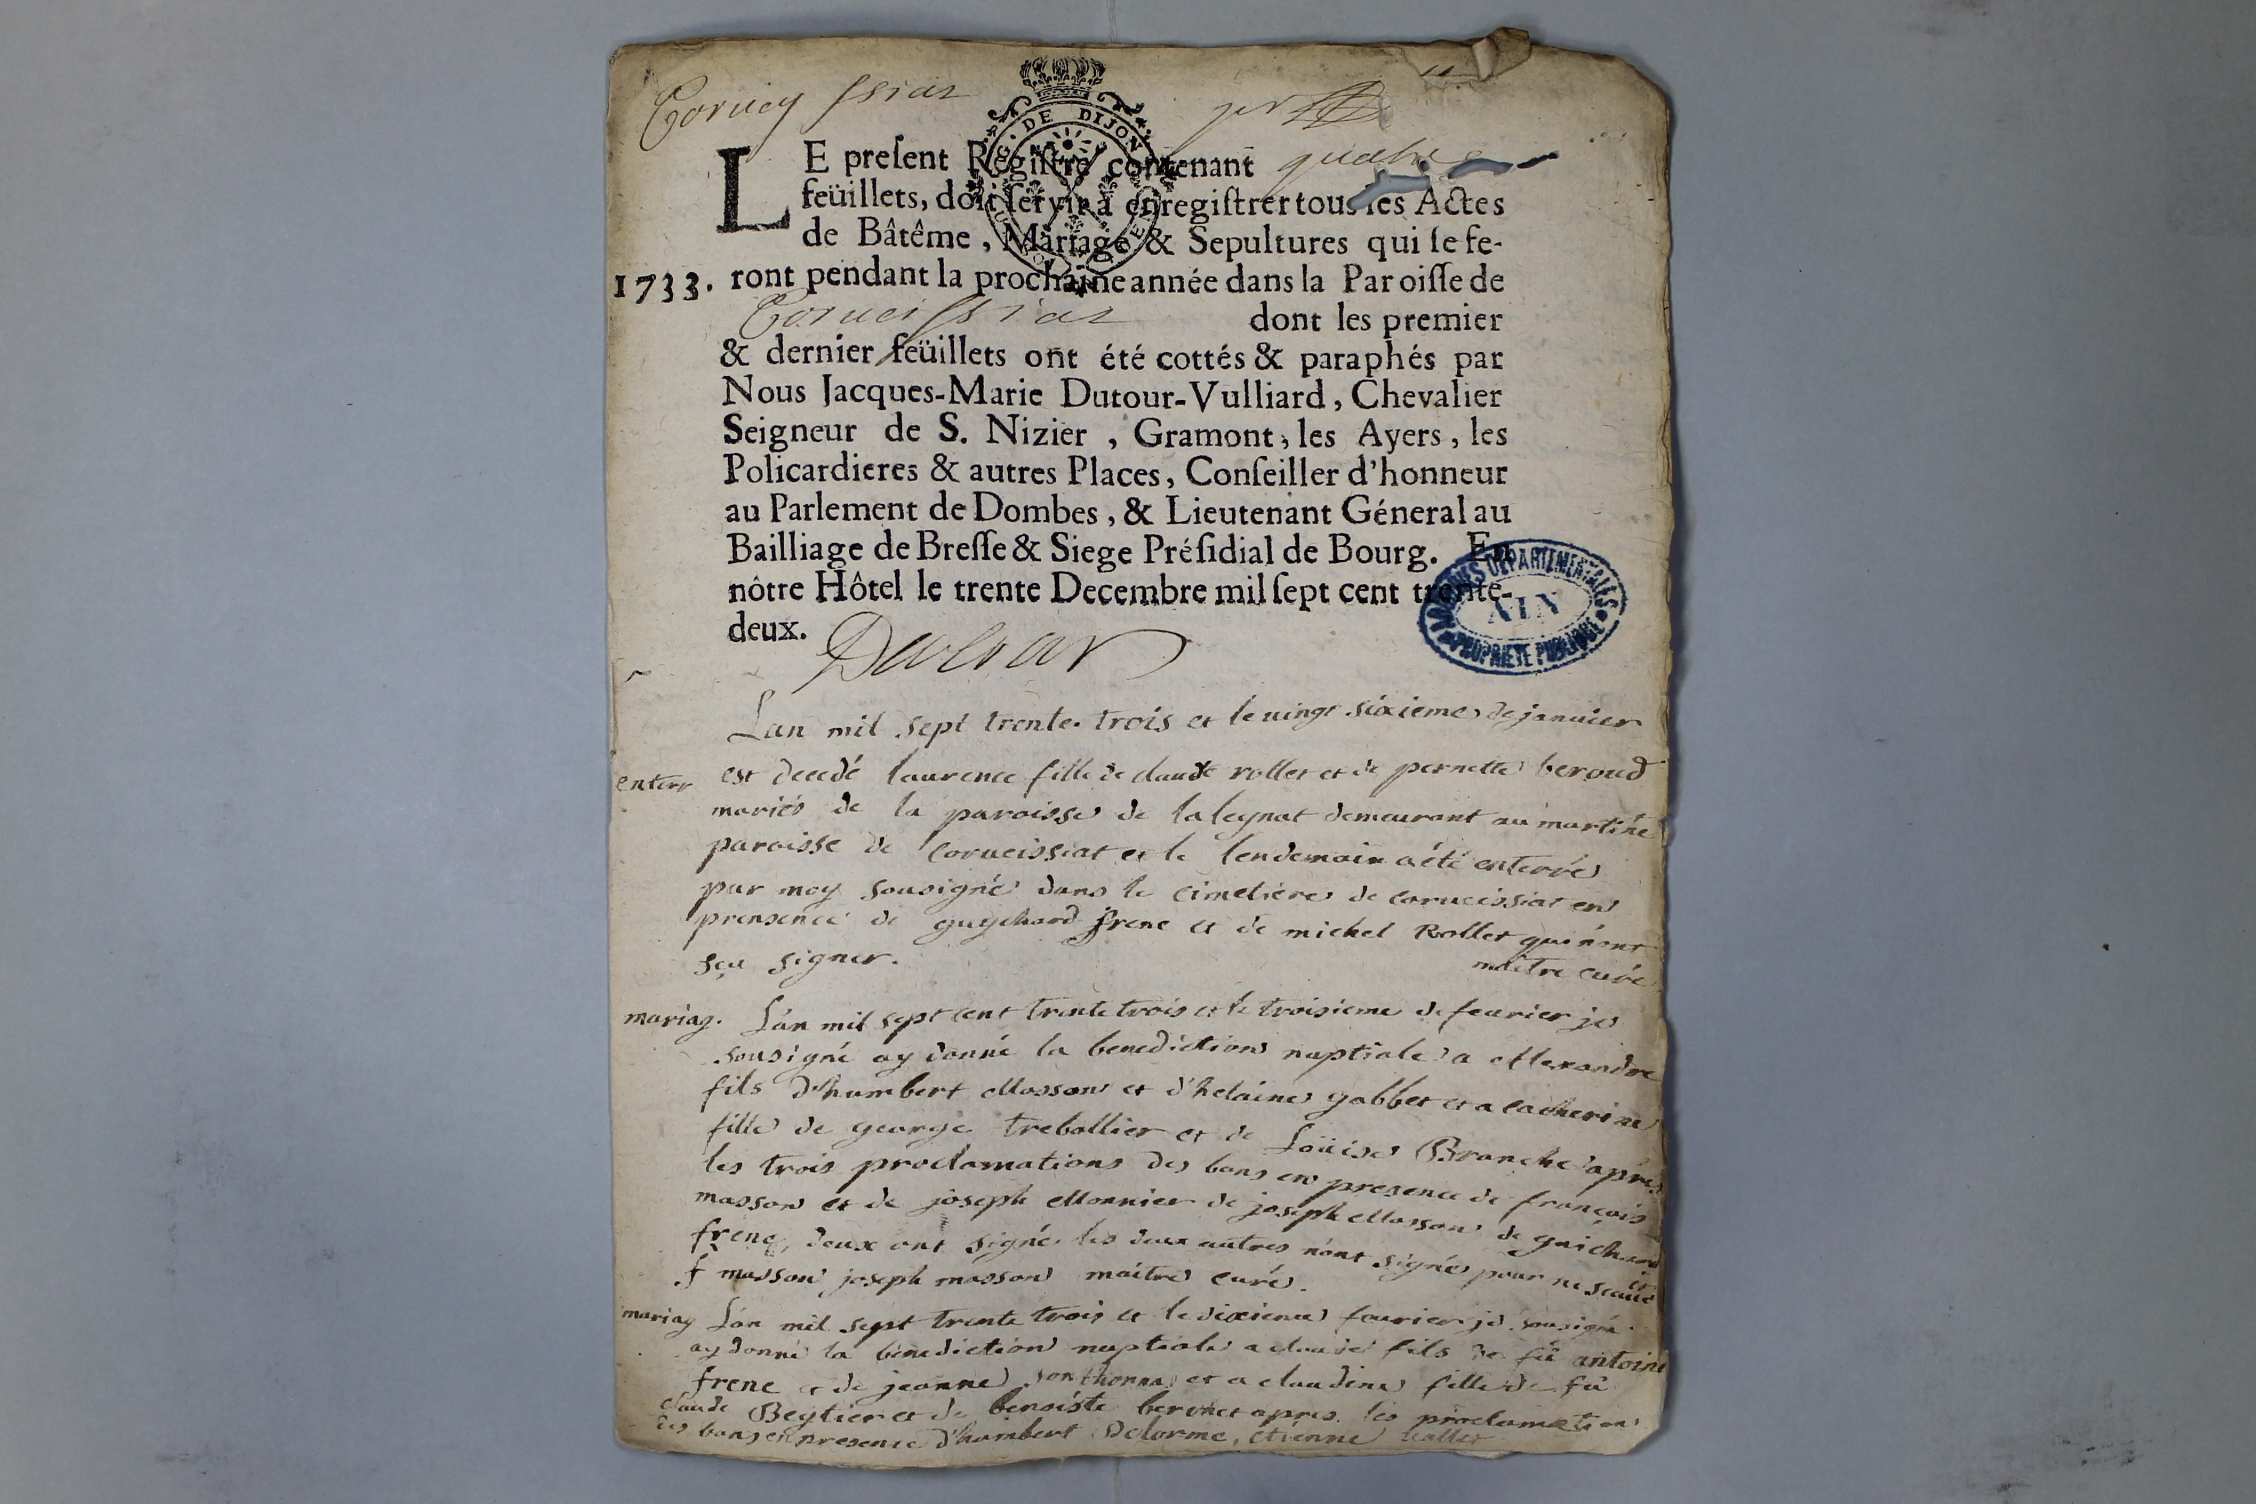 Corveyssiat
G. DE DIJON
LE preſent Regiſtre contenant quatre
feüillets, doit ſervir à enregiſtrer tous les Actes
de Bâtême, Mariage & Sepultures qui ſe fe-
1733. ront pendant la prochaine année dans la Paroiſſe de
Corveissiat dont les premier
& dernier feüillets ont été cottés & paraphés par
Nous Jacques-Marie Dutour-Vulliard, Chevalier
Seigneur de S. Nizier, Gramont, les Ayers, les
Policardieres & autres Places, Conſeiller d'honneur
au Parlement de Dombes, & Lieutenant Géneral au
Bailliage de Breſſe & Siege Préſidial de Bourg. En
nôtre Hôtel le trente Decembre mil ſept cent trente-
deux.
ARCHIVES DEPARTEMENTALES
AIN
PROPRIÉTÉ PUBLIQUE
Lan mil sept trente trois et le vingt sixieme de janvier
enterr est decedé laurence fille de claude rollet et de pernette beroud
mariés de la paroisse de laleynat demeurant au martine
paroisse de corveissiat et le lendemain a été enterré
par moy sousigné dans le cimetiere de corveissiat en
prensence de guychard frene et de michel Rollet qui n'ont
sçu signer. maitre curé
mariag. L'an mil sept cent trente trois et le troisieme de fevrier je
sousigné ay donné la benediction nuptiale a Alexandre
fils d'humbert Masson et d'helaine gobbet et a catherine
fille de george treballier et de Loüise Branche apres
les trois proclamations des bans en presence de françois
masson et de joseph Monnier de joseph Masson de guichard
frene, deux ont signé les deux autres n'ont signé pour ne scavoir
f masson joseph masson maitre curé.
mariag L'an mil sept trente trois et le dixieme fevrier je sousigné
ay donné la benediction nuptiale a claude fils de fû antoine
frene et de jeanne sonthonna et a claudine fille de fû
claude Beytier et de benoiste beronet apres les proclamation
des bans en presence d'humbert Delorme, etienne